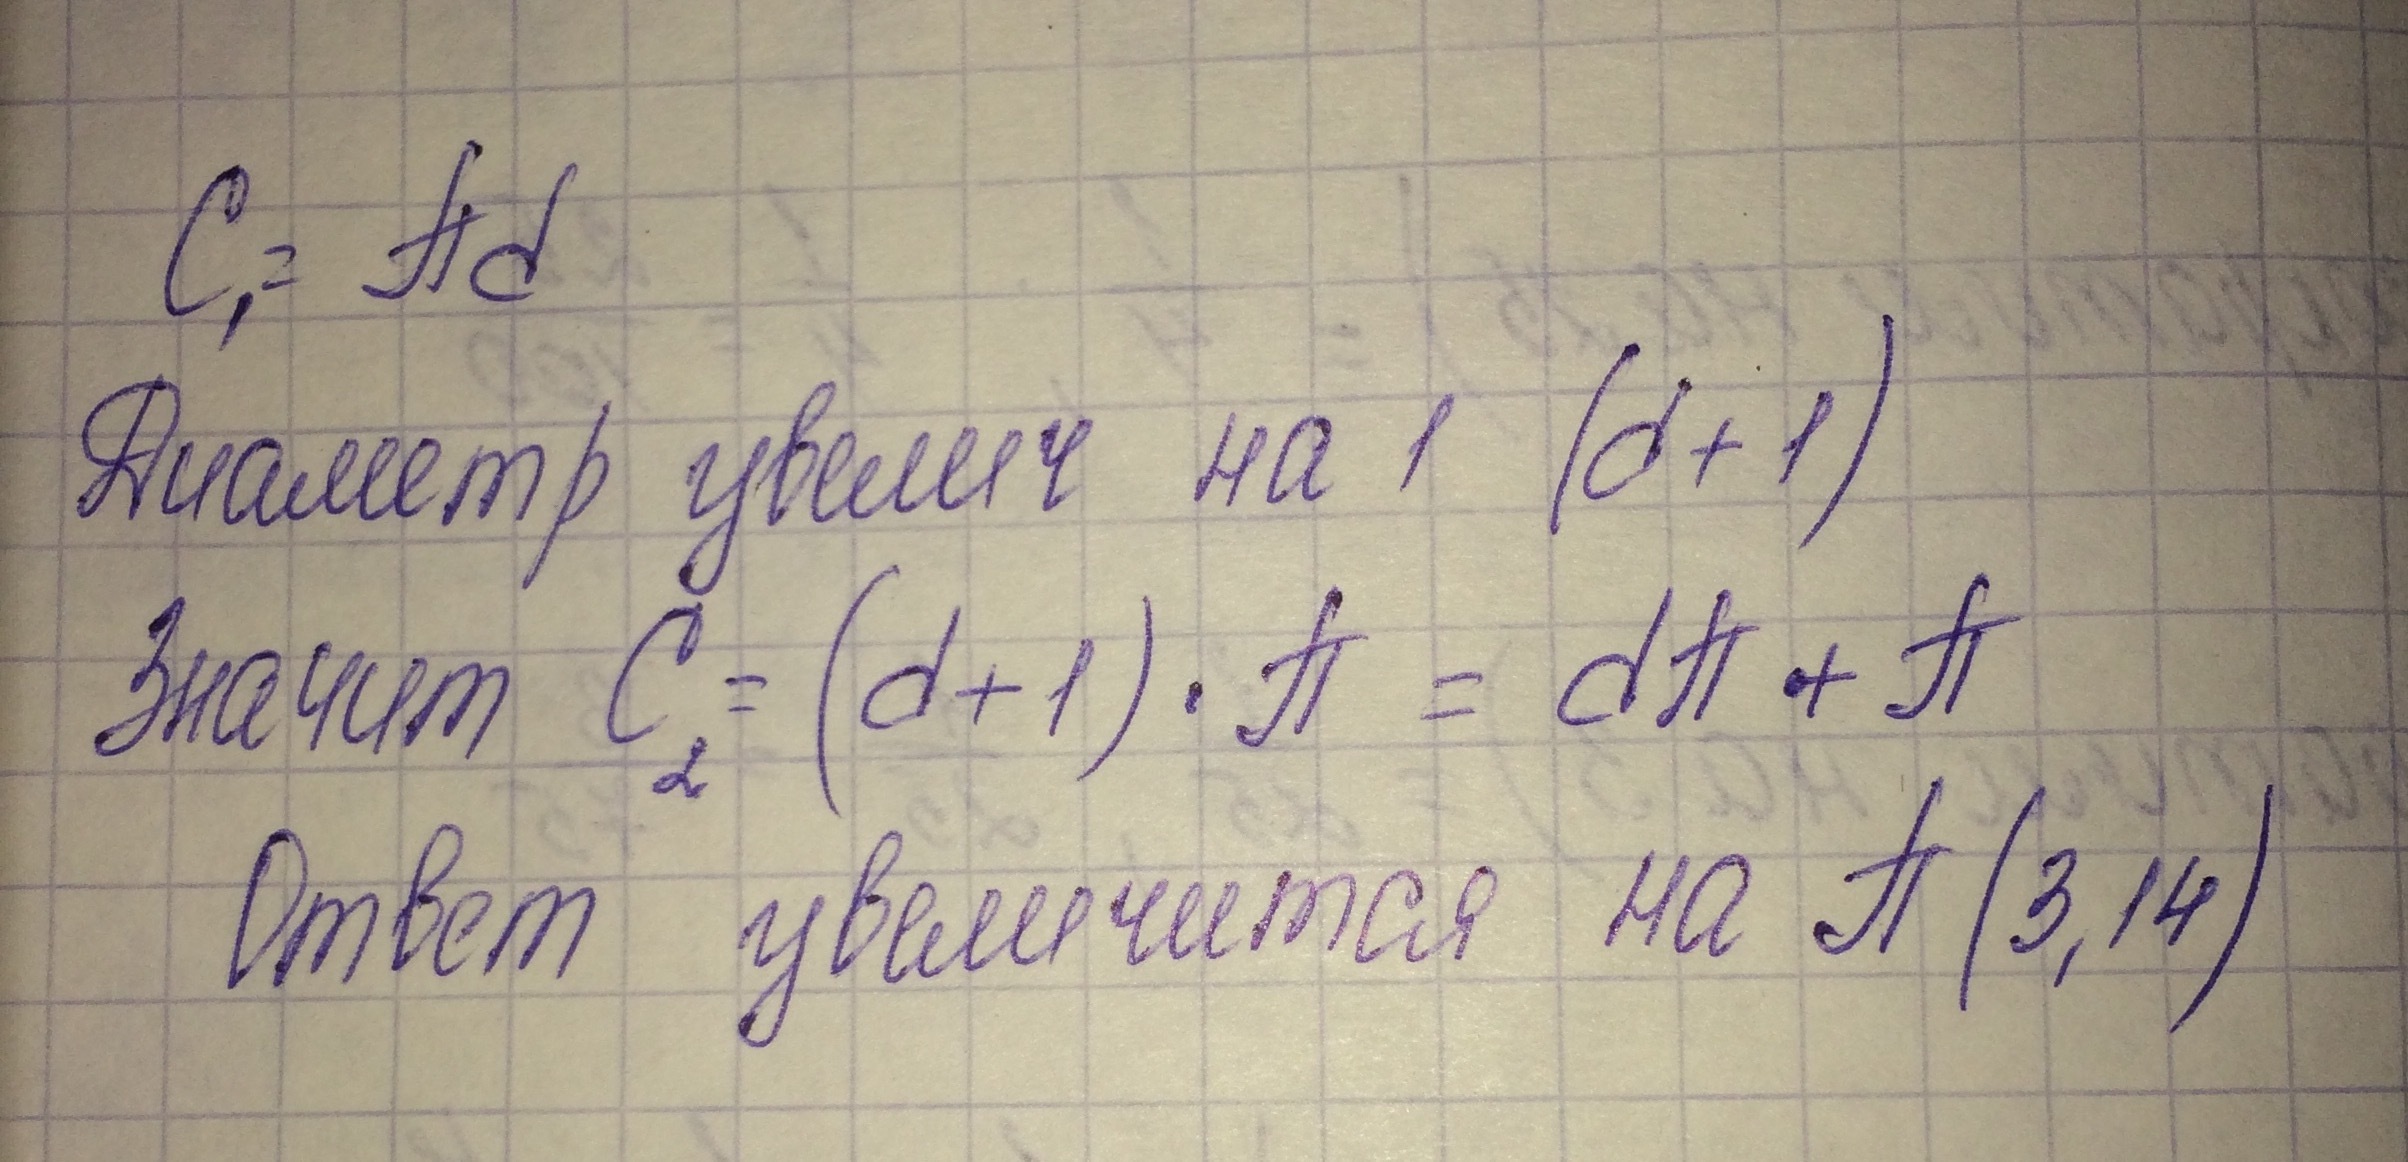 C₁ = πd
Диаметр увелич на 1 (d+1)
Значит C₂ = (d+1) · π = dπ + π
Ответ увеличится на π (3,14)